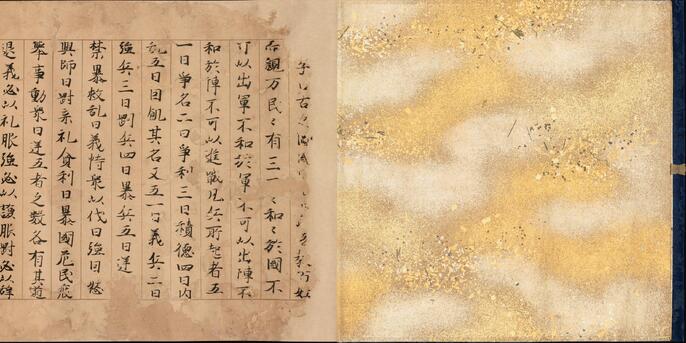 子曰古之
而親万民々有三一々和々於國不
可以出軍不和於軍不可以出陣不
和於陣不可以進戰凡兵所起者五
一曰爭名二曰爭利三曰積德四曰内
乱五曰因飢其名又五一曰義兵二曰
強兵三曰剛兵四曰暴兵五曰逆
禁暴救乱曰義恃衆以伐曰強因怒
興師曰剛弃礼貪利曰暴國危民疲
舉事動衆曰逆五者之數各有其道
義必以礼服強必以謙服剛必以辞